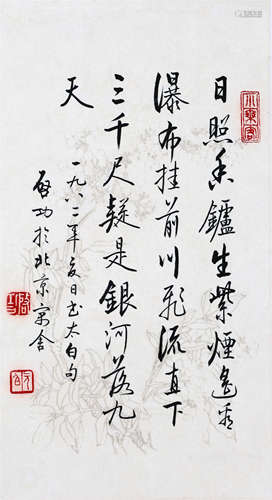 日照香鑪生紫煙遙看
瀑布挂前川飛流直下
三千尺疑是銀河落九
天
一九八二年夏日书太白句
啟功於北京寓舍